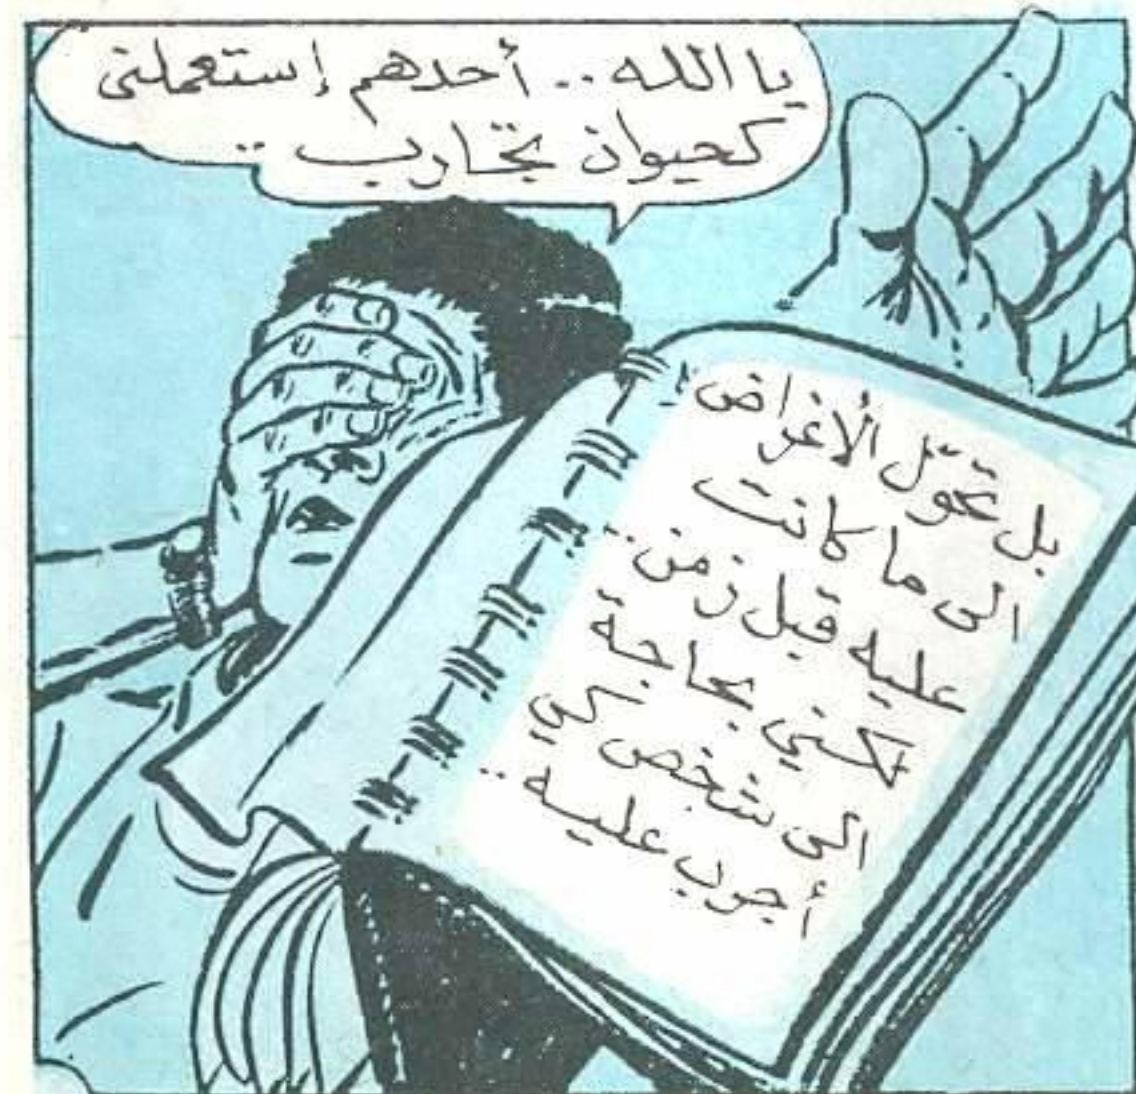 يا الله.. أحدهم إستعملني
كحيوان تجارب..
بل تحوّل الأغراض
الى ما كانت
عليه قبل زمن..
لكني بحاجة
الى شخص لكي
أجرب عليه..